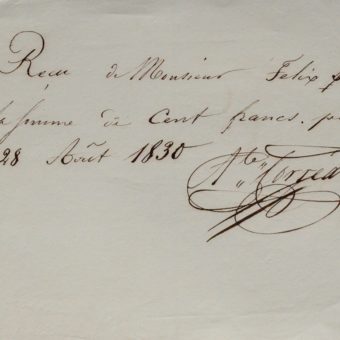 Reçu de Monsieur Felix
la somme de Cent francs.
28 Août 1830